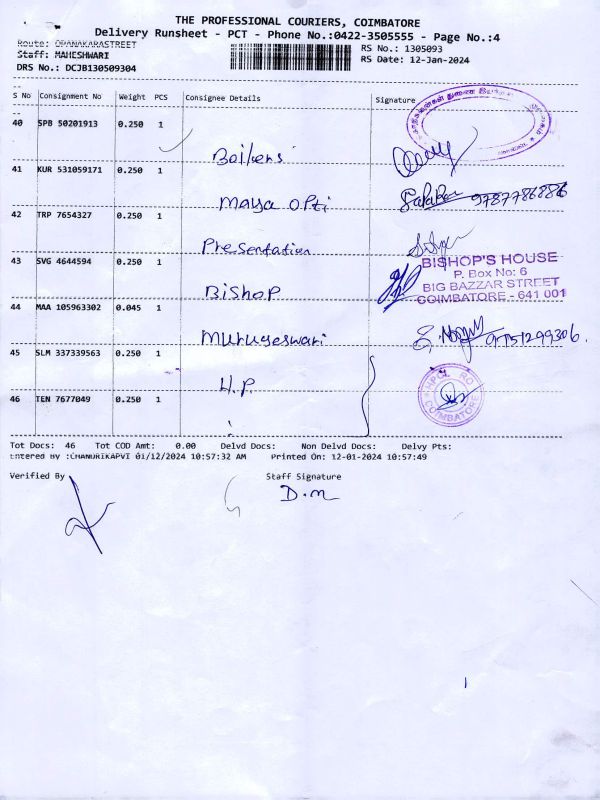 THE PROFESSIONAL COURIERS, COIMBATORE
Delivery Runsheet - PCT - Phone No.:0422-3505555 - Page No.:4
Route: OPANAKARASTREET
Staff: MAHESHWARI
DRS No.: DCJB130509304
RS No.: 1305093
RS Date: 12-Jan-2024
S No Consignment No Weight PCS Consignee Details Signature
40 SPB 50201913 0.250 1
41 KUR 531059171 0.250 1
Maya opti 9787786886
42 TRP 7654327 0.250 1
Presentation
43 SVG 4644594 0.250 1
Bishop
BISHOP'S HOUSE
P. Box No: 6
BIG BAZZAR STREET
COIMBATORE - 641 001
44 MAA 105963302 0.045 1
Murugeswari 9751299306.
45 SLM 337339563 0.250 1
H.P.
HPCL RO
COIMBATORE
46 TEN 7677049 0.250 1
Tot Docs: 46 Tot COD Amt: 0.00 Delvd Docs: Non Delvd Docs: Delvy Pts:
Entered By :CHANDRIKAPVI 01/12/2024 10:57:32 AM Printed On: 12-01-2024 10:57:49
Verified By Staff Signature
D.m